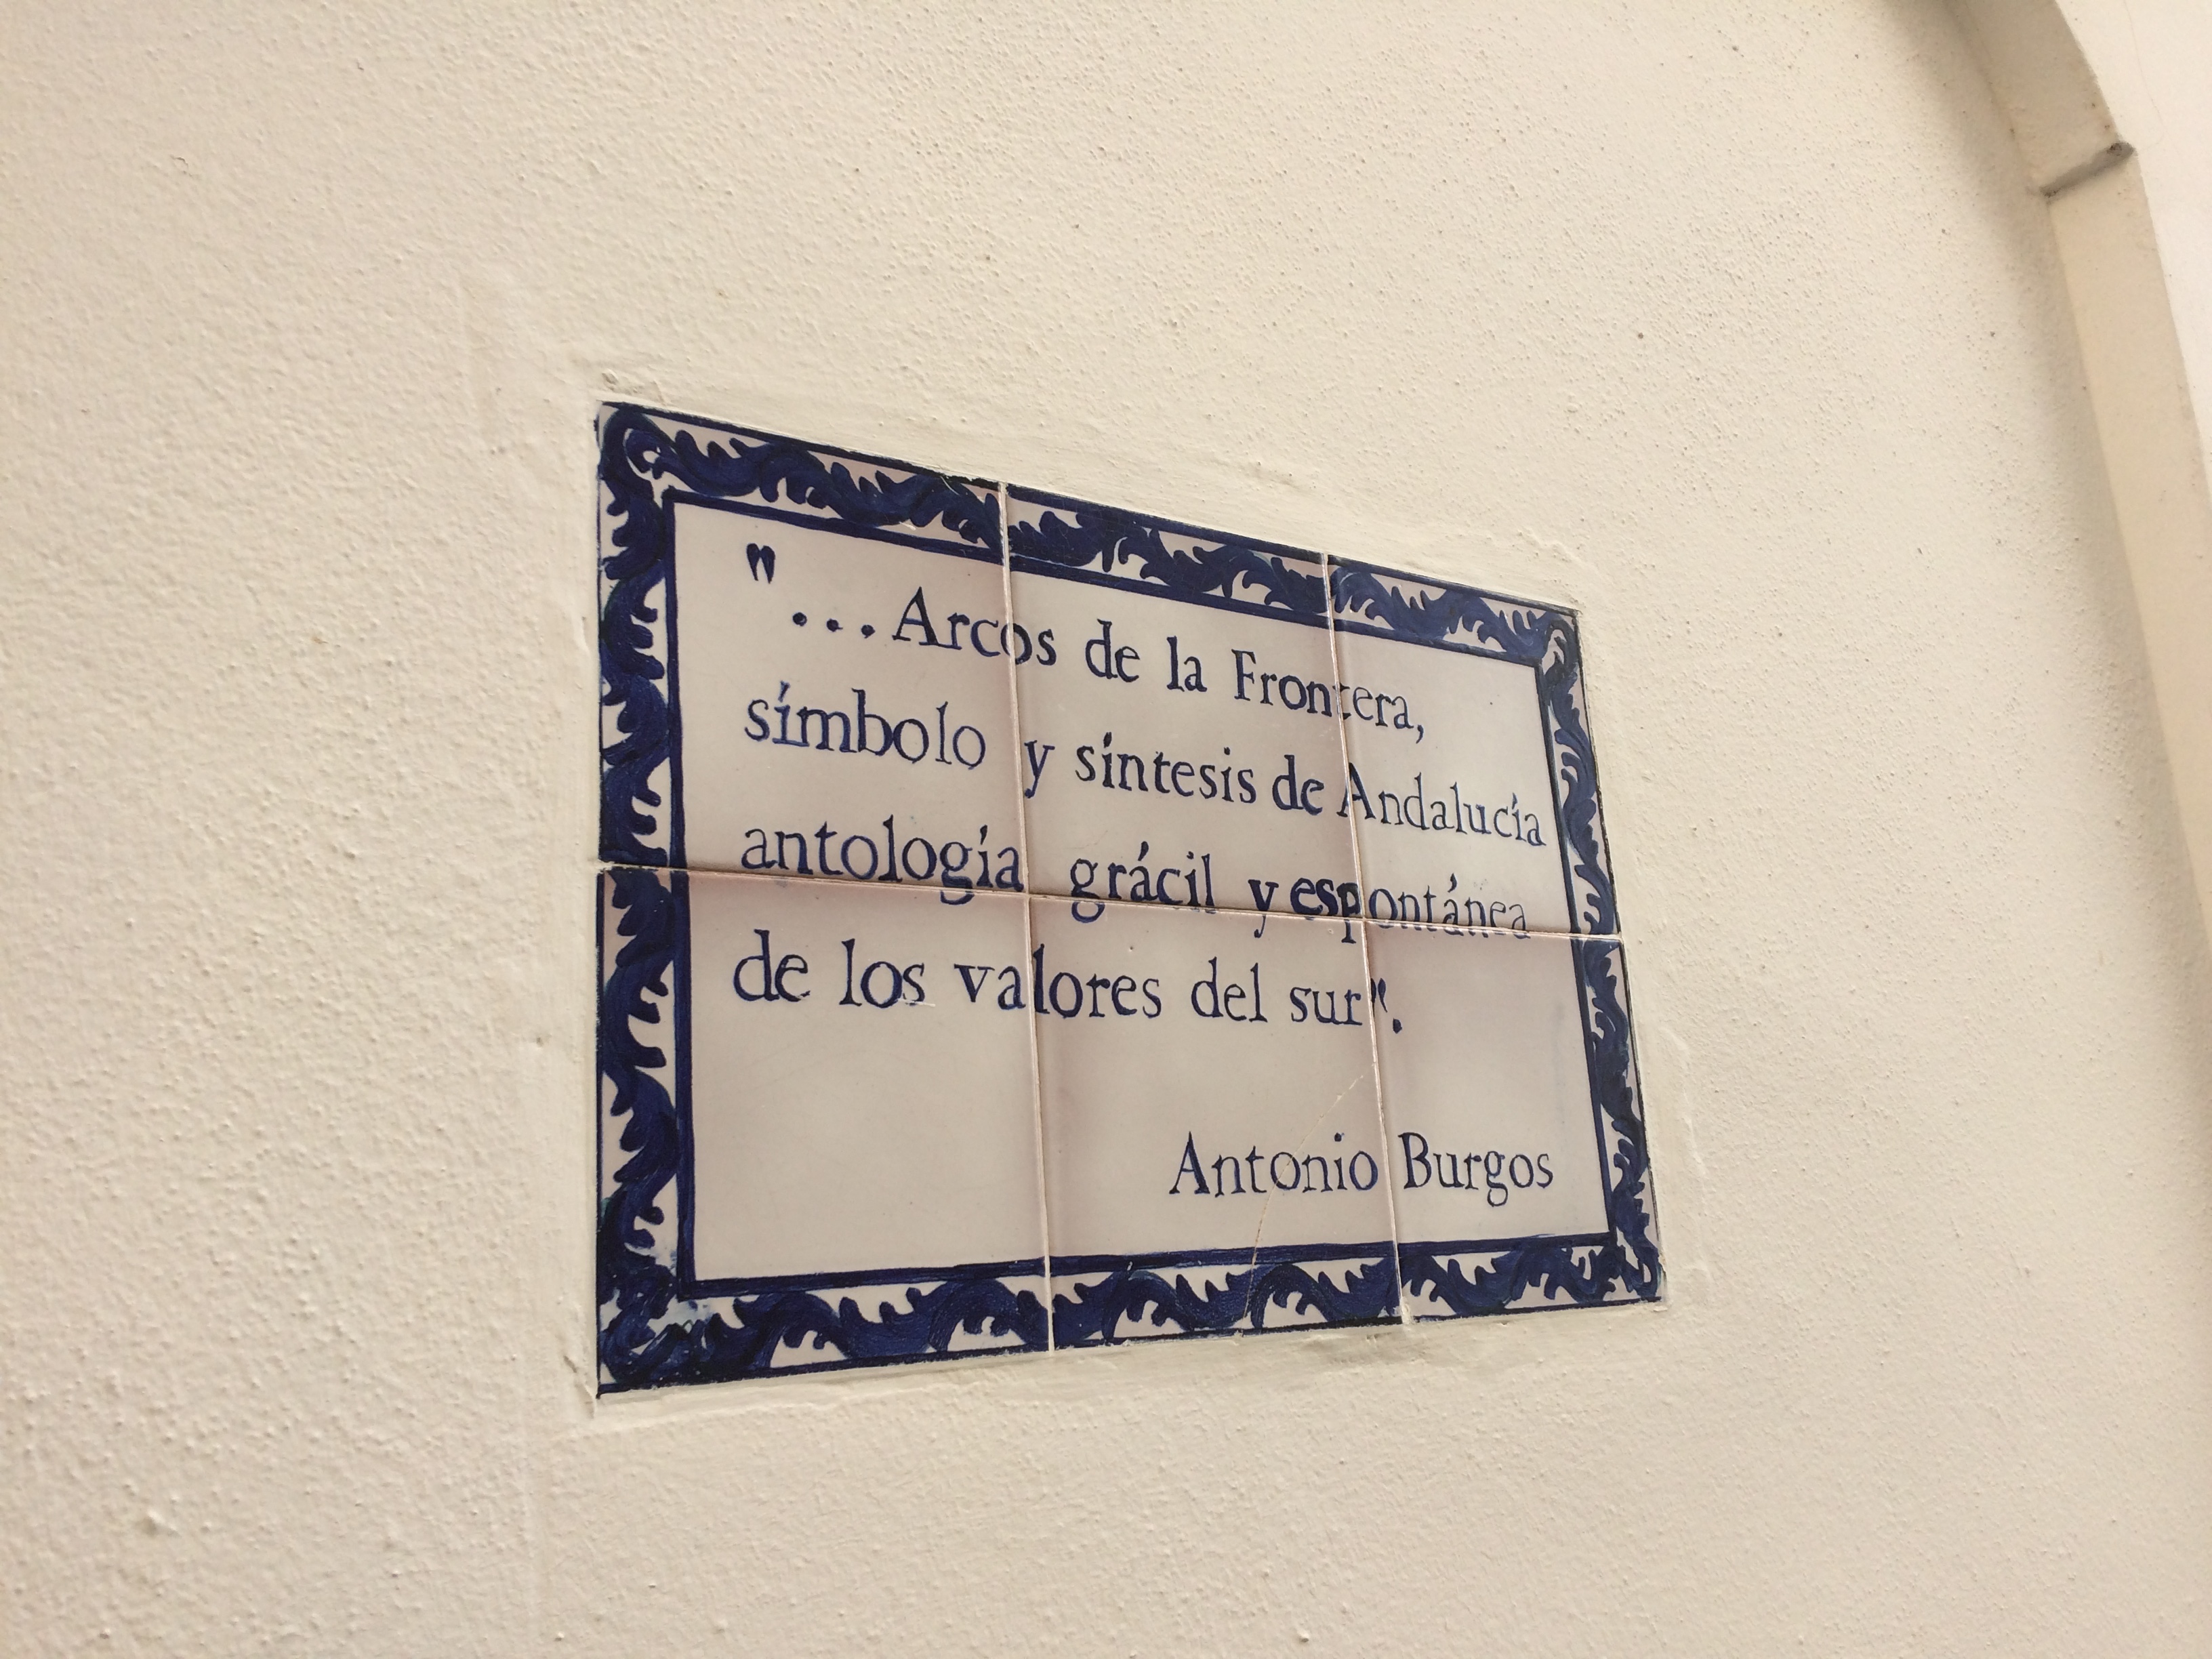 "...Arcos de la Frontera,
símbolo y síntesis de Andalucía
antología grácil y espontánea
de los valores del sur".
Antonio Burgos